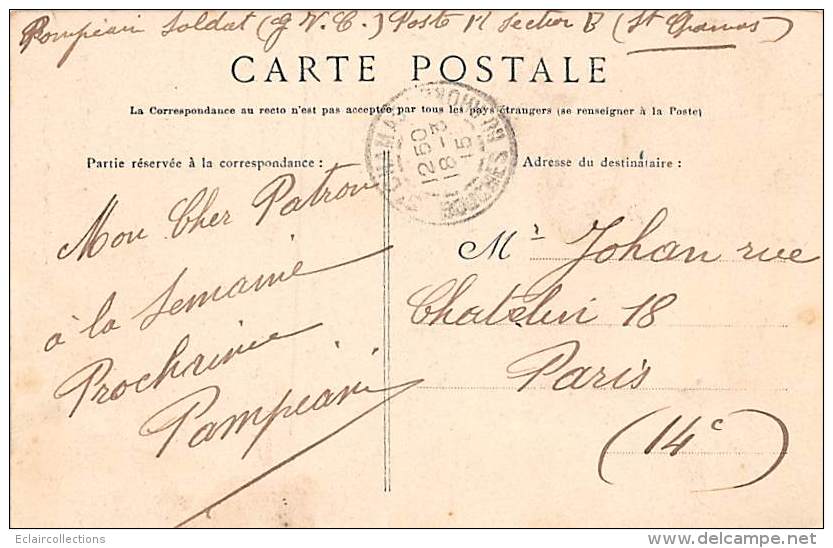 Pompeiani Soldat (G. V. C.) Poste N Section B (St Chamas)
CARTE POSTALE
La Correspondance au recto n'est pas acceptée par tous les pays étrangers (se renseigner à la Poste)
Partie réservée à la correspondance :
Adresse du destinataire :
1250
18 - 2
15
BOUCHES DU RHONE
Mon Cher Patron
à la Semaine
Prochaine
Pampeiani
Mr Johan rue
Chatelin 18
Paris
(14e)
Eclaircollections
www.delcampe.net